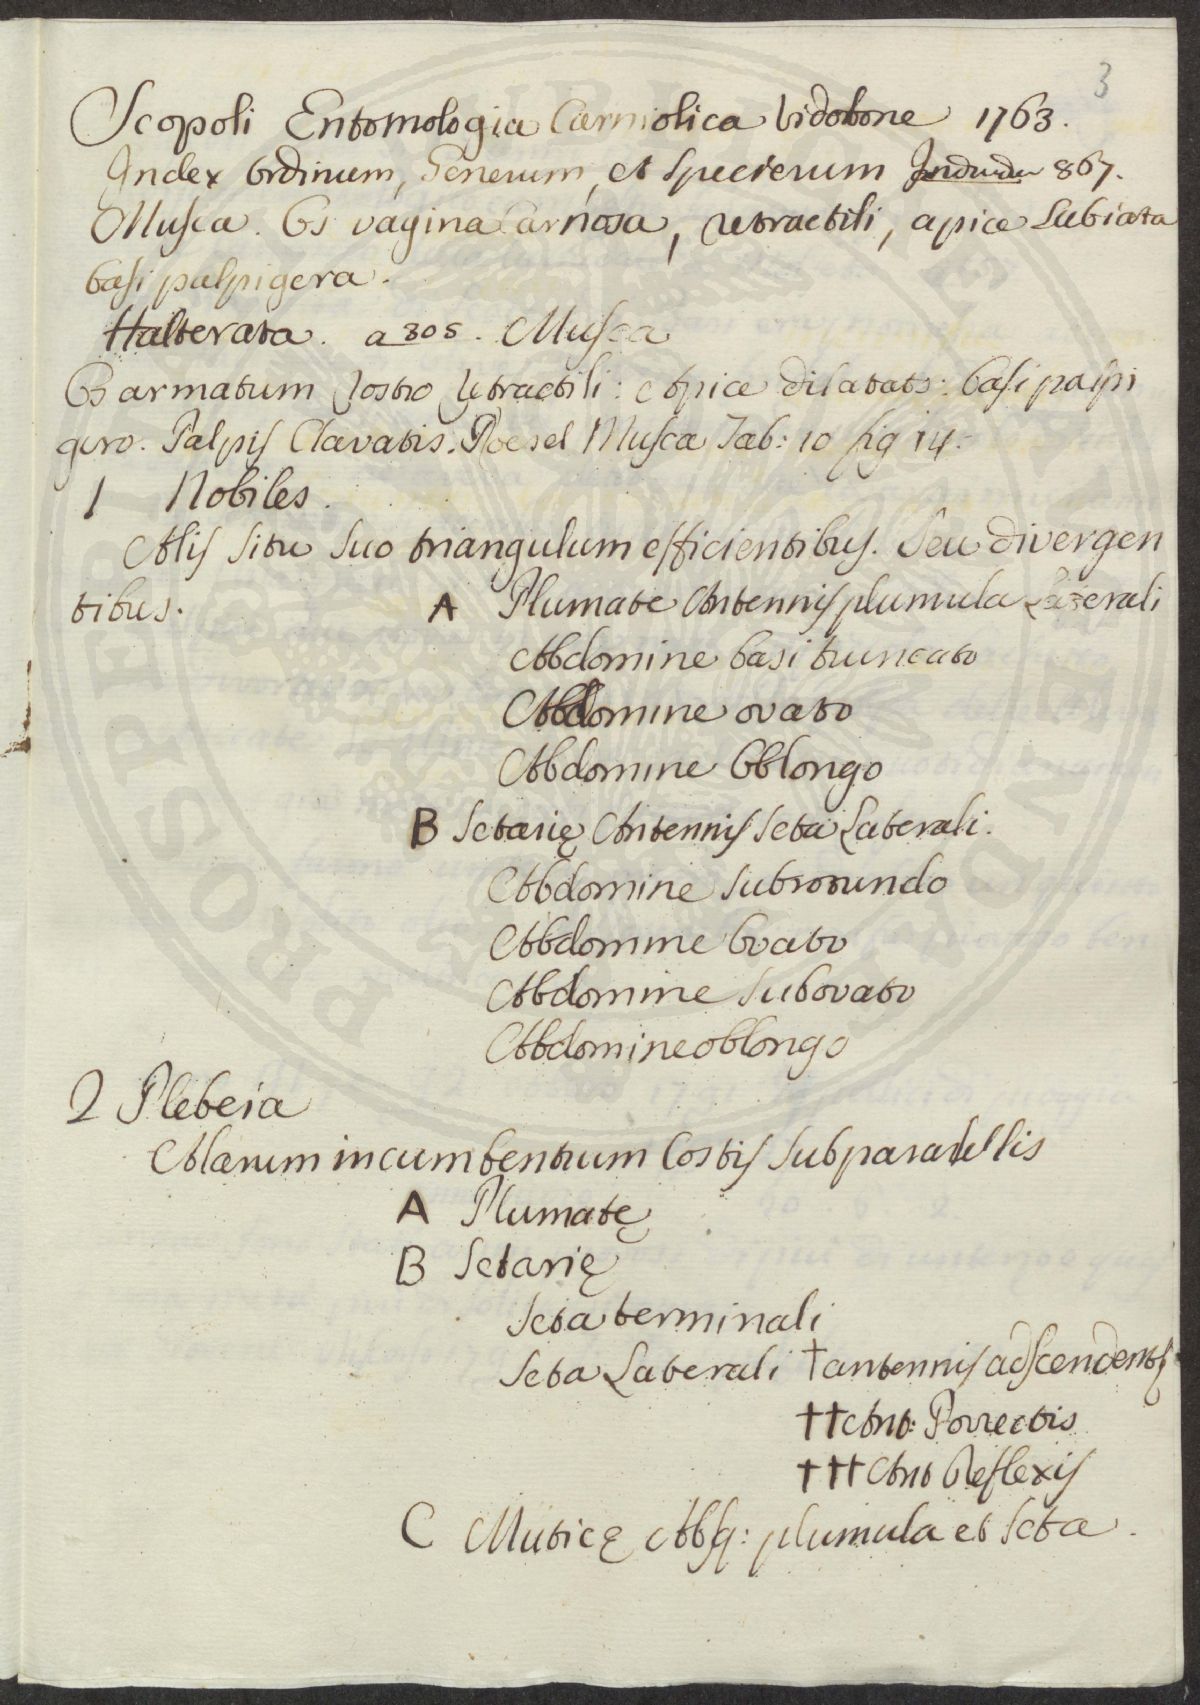 3
Scopoli Entomologia Carniolica Vidobone 1763.
Index Ordinum, Generum, et Specierum 867.
Musca. Os vagina Carnosa, retractili, apice Labiata
basi palpigera.
Halterata. a 805. Musca
Os armatum Rostro Retractili: Apice dilatato: basi palpi
gero. Palpis Clavatis. Roesel Musca Tab: 10 fig 14.
1 Nobiles.
Alis situ suo triangulum efficientibus. Seu divergen
tibus. A Plumate Antennis plumula Laterali
Abdomine basi truncato
Abdomine ovato
Abdomine Oblongo
B Setarię Antennis seta Laterali.
Abdomine subrotundo
Abdomine Ovato
Abdomine subovato
Abdomine oblongo
2 Plebeia
Alarum incumbentium Costis subparallelis
A Plumatę
B Setarię
Seta terminali
Seta Laterali † antennis adscendentis
†† Ant: Porrectis
††† Ant Reflexis
C Muticę Absq: plumula et seta.
PROSPERITE